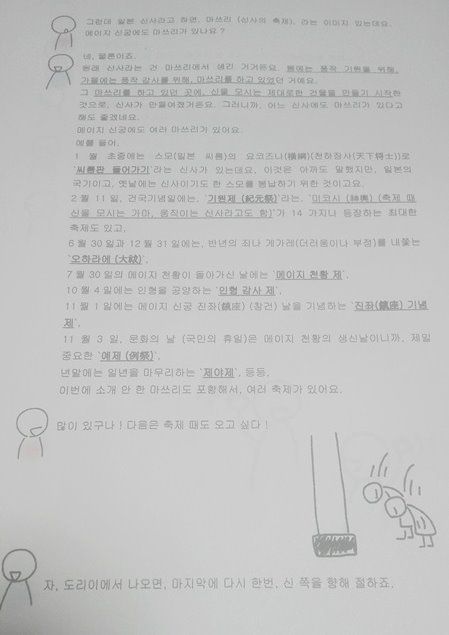 그런데 일본 신사라고 하면, 마쓰리 (신사의 축제), 라는 이미지 있는데요.
메이지 신궁에도 마쓰리가 있나요 ?
네, 물론이죠.
원래 신사라는 건 마쓰리에서 생긴 거거든요. 봄에는 풍작 기원을 위해,
가을에는 풍작 감사를 위해, 마쓰리를 하고 있었던 거예요.
그 마쓰리를 하고 있던 곳에, 신을 모시는 제대로한 건물을 만들기 시작한
것으로, 신사가 만들어졌거든요. 그러니까, 어느 신사에도 마쓰리가 있다고
해도 좋겠네요.
메이지 신궁에도 여러 마쓰리가 있어요.
예를 들어,
1 월 초중에는 스모(일본 씨름)의 요코즈나(横綱)(천하장사(天下壮士))로
`씨름판 들어가기`라는 신사가 있는데요, 이것은 아까도 말했지만, 일본의
국기이고, 옛날에는 신사이기도 한 스모를 봉납하기 위한 것이고요.
2 월 11 일, 건국기념일에는, `기원제 (紀元祭)`라는, `미코시 (神輿) (축제 때
신을 모시는 가마, 움직이는 신사라고도 함)`가 14 가지나 등장하는 최대한
축제도 있고,
6 월 30 일과 12 월 31 일에는, 반년의 죄나 게가레(더러움이나 부정)를 내쫓는
`오하라에 (大祓)`,
7 월 30 일의 메이지 천황이 돌아가신 날에는 `메이지 천황 제`,
10 월 4 일에는 인형을 공양하는 `인형 감사 제`,
11 월 1 일에는 메이지 신궁 진좌(鎮座) (창건) 날을 기념하는 `진좌(鎮座) 기념
제`,
11 월 3 일, 문화의 날 (국민의 휴일)은 메이지 천황의 생신날이니까, 제일
중요한 `예제 (例祭)`,
년말에는 일년을 마무리하는 `제야제`, 등등,
이번에 소개 안 한 마쓰리도 포함해서, 여러 축제가 있어요.
많이 있구나 ! 다음은 축제 때도 오고 싶다 !
자, 도리이에서 나오면, 마지막에 다시 한번, 신 쪽을 향해 절하죠.